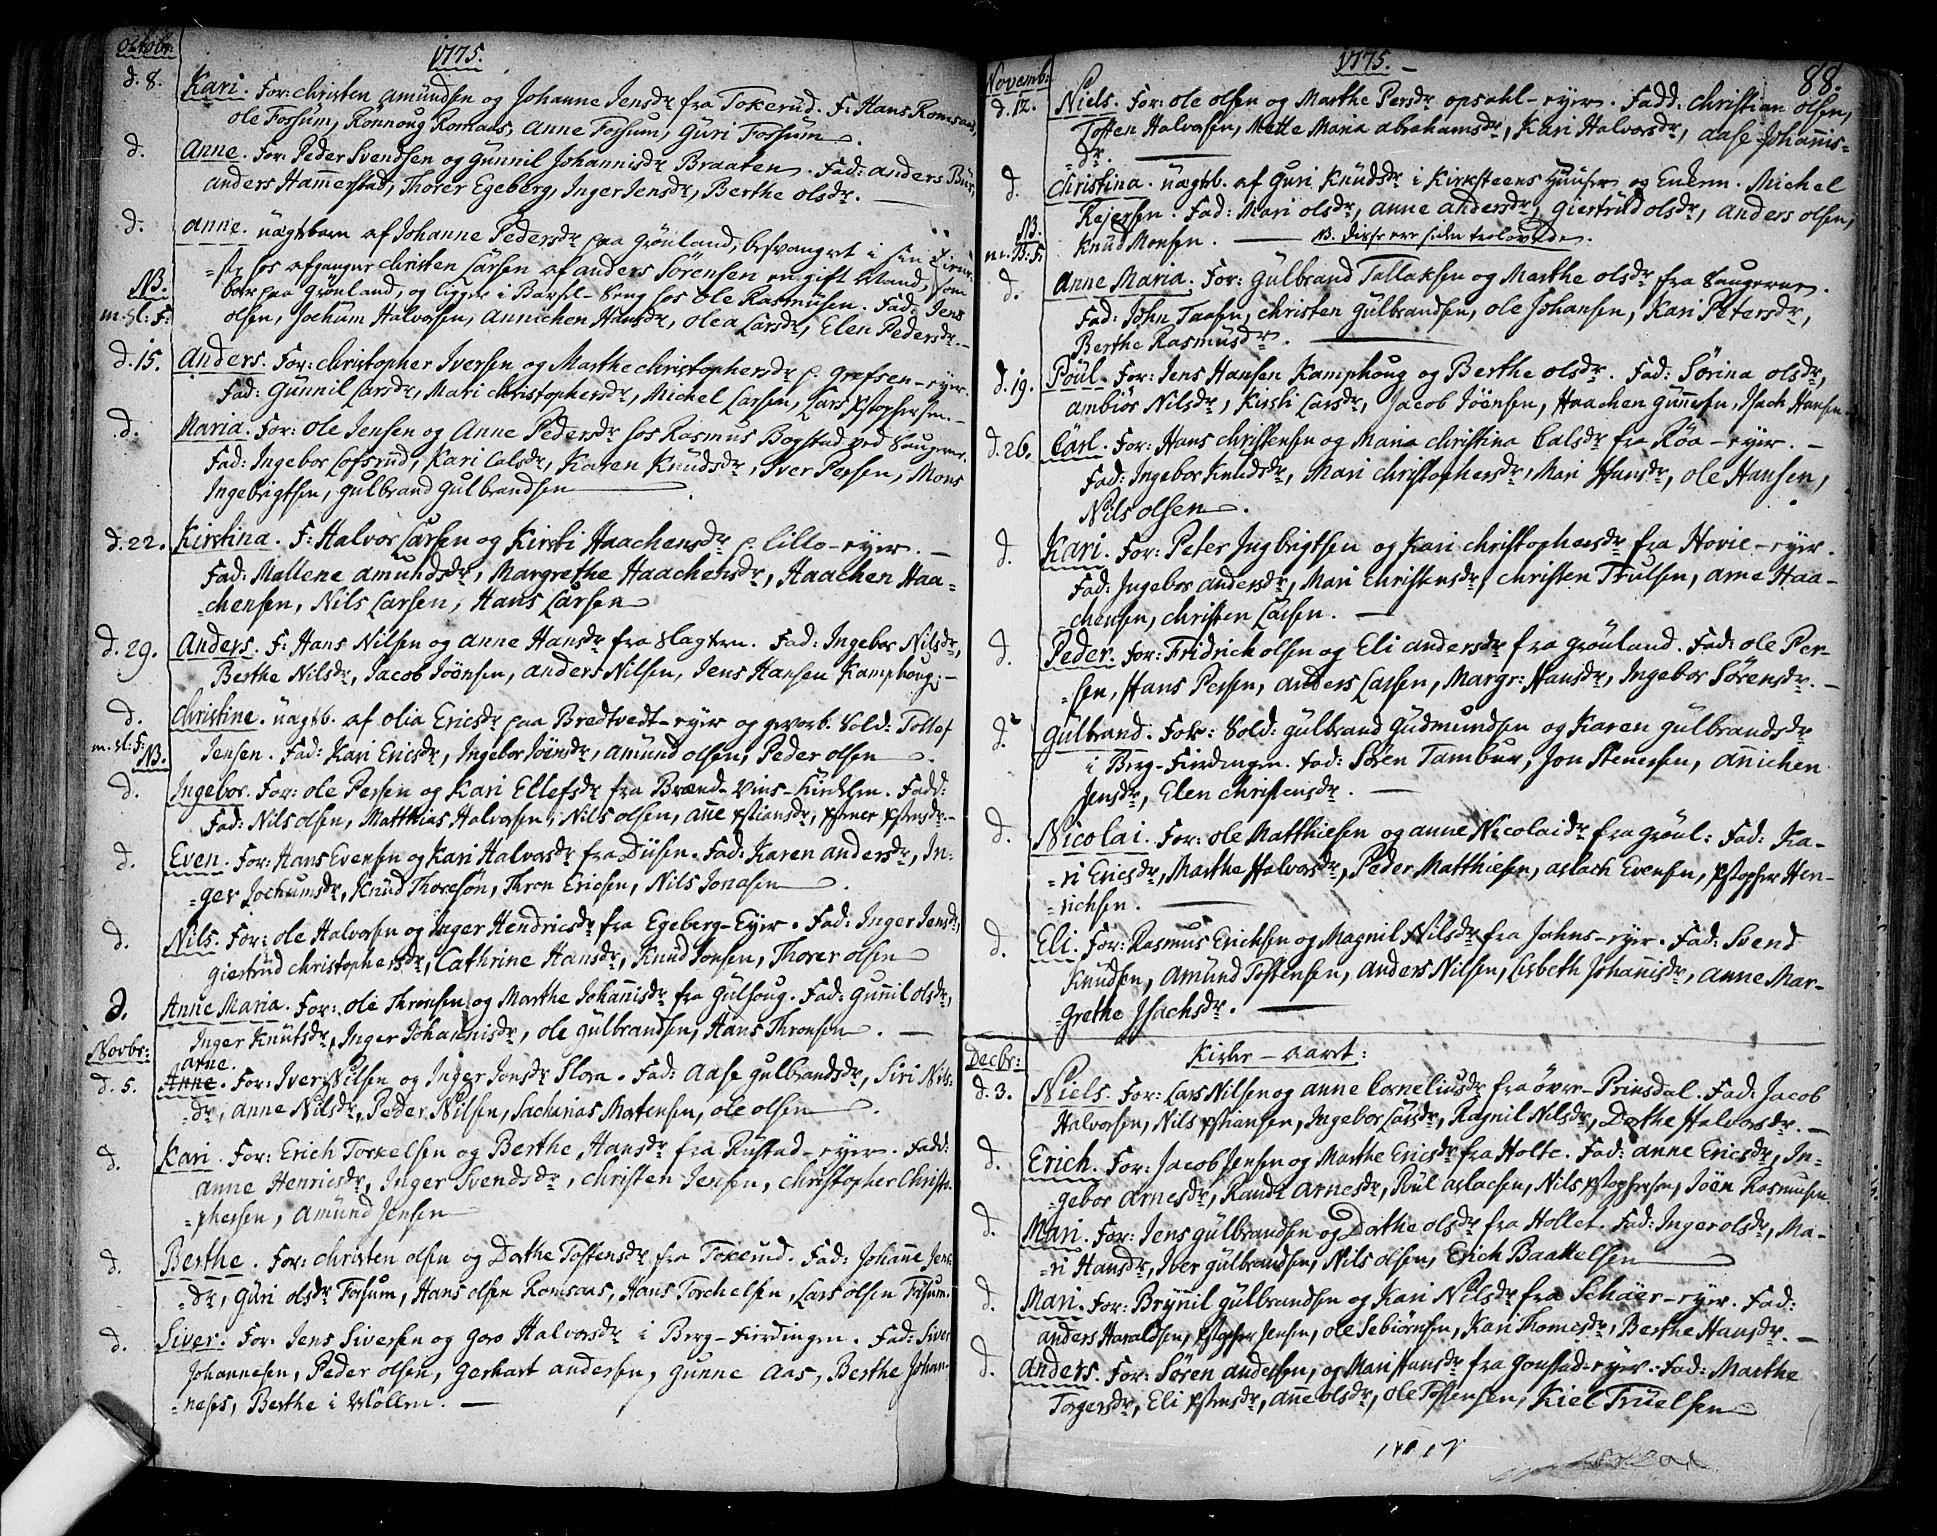 octobr:
1775.
d. 8. Kari. For: christen amundsen og Johanne Jensdr fra Tokerud. F: Hans Romsaas,
ole Fossum, Ronnoug Romaas, Anne Fossum, Guri Fossum.
d. Anne. For: Peder Svendsen og Gunnil Johannisdr Braaten. Fad: anders Bur,
anders Hammerstad, Thorer Egeberg, Inger Jensdr, Berthe olsdr.
d. anne. uægtebarn af Johanne Pedersdr paa Grønland, besvangret i sin Tiene-
NB. -ste hos afgangne christen Larsen af anders Sørensen en gift Mand, som
boer paa Grønland, og ligger i Barsel-Seng hos ole Rasmusen. Fad: Jens
m. sl: F: olsen, Jochum Halvorsen, Annichen Hansdr, olea Larsdr, Elen Pedersdr.
d. 15. Anders. For: christopher Iversen og Marthe christophersdr p. Grefsen-eyer.
Fad: Gunnil Larsdr, Mari christophersdr, Michel Larsen, Lars xstophersen.
d. Maria. For: ole Jensen og Anne Pedersdr hos Rasmus Bogstad ved Saugene.
Fad: Ingebor Lofsrud, Kari Calsdr, Karen Knudsdr, Iver Persen, Mons
Ingebrigtsen, gulbrand Gulbrandsen
d. 22. Kirstina. F: Halvor Larsen og Kirsti Haachensdr p. Lillo-eyer.
Fad: Mallene amundsdr, Margrethe Haachensdr, Haachen Haa-
-chensen, Nils Larsen, Hans Larsen
d. 29. Anders. F: Hans Nilsen og anne Hansdr fra Slagtern. Fad: Ingebor Nilsdr,
Berthe Nilsdr, Jacob Jøensen, anders Nilsen, Jens Hansen Kamphoug.
d. Christine. uægtb. af olia Ericsdr paa Bredtvedt-eyer og gevorb. Sold: Tollef
m. sl: F: NB. Jensen. Fad: Kari Ericsdr, Ingebor Jøensdr, Amund olsen, Peder olsen.
d. Ingebor. For: ole Persen og Kari Ellefsdr fra Brænd-Viins-Kieldern. Fadd:
Fad: Nils olsen, Matthias Halvorsen, Nils olsen, anne xstiansdr, xsterner xstensdr.
d. Even. For: Hans Evensen og Kari Halvorsdr fra Disen. Fad: Karen andersdr, In-
-ger Jochumsdr, Knud Thoresøn, Thron Ericsen, Nils Jonasen.
d. Nils. For: ole Halvorsen og Inger Hendricsdr fra Egeberg-Eyer. Fad: Inger Jensdr,
giertrud christophersdr, Cathrine Hansdr, Knud Jonsen, Thorer olsen
d. Anne Maria. For: ole Thronsen og Marthe Johannisdr fra Gulhoug. Fad: Gunnil olsdr,
Inger Knutsdr, Inger Johannisdr, ole gulbrandsen, Hans Thronsen.
Novbr:
arne.
d. 5. Anne. For: Iver Nilsen og Inger Jonsdr Flora. Fad: Aase gulbrandsdr, Siri Nils-
-dr, anne Nilsdr, Peder Nilsen, Sacharias Mortensen, ole olsen.
d. Kari. For: Erich Torkelsen og Berthe Hansdr fra Rustad-eyer. Fadd:
anne Henricsdr, Inger Svendsdr, christen Jensen, christopher Christo-
-phersen, Amund Jensen
d. Berthe. For: christen olsen og Dorthe Tostensdr fra Tokerud. Fad: Johanne Jens-
-dr, Guri olsdr Fossum, Hans olsen Romsaas, Hans Torchelsen, Lars olsen Fossum.
d. Siver. For: Jens Siversen og Goro Halvorsdr i Berg-Fierdingen. Fad: Siver
Johannesen, Peder olsen, Gerhart andersen, gunne Aas, Berthe Johan-
-neses, Berthe i Møllen.
1775.
88.
Novemb:
d. 12. Niels. For: ole olsen og Marthe Persdr opsahl-eyer. Fadd: christian olsen,
Tosten Halvorsen, Mette Maria abrahamsdr, Kari Halvorsdr, aase Johannis-
-dr.
d. Christina. uægtb. af Guri Knudsdr i Kirksteens Huuser og Enkem. Michel
Rejersen. Fad: Mari olsdr, anne andersdr, giertrud olsdr, anders olsen,
NB. m. B: F: Knud Monsen. NB. disse ere siden trolovede.
d. Anne Maria. For: Gulbrand Tollaksen og Marthe olsdr fra Saugerne.
Fad: John Taasen, christen Gulbrandsen, ole Johansen, Kari Petersdr,
Berthe Rasmusdr.
d. 19. Poul. For: Jens Hansen Kamphoug og Berthe olsdr. Fad: Sørina olsdr,
ambiør Nilsdr, Kirsti Larsdr, Jacob Jøensen, Haachen Gunnesen, Isach Hansen.
d. 26. Carl. For: Hans christensen og Maria christina Calsdr fra Røa-eyer.
Fad: Ingebor Knudsdr, Mari christophersdr, Mari Hansdr, ole Hansen,
Nils olsen.
d. Kari. For: Peter Ingbrigtsen og Kari christophersdr fra Hovie-eyer.
Fad: Ingebor andersdr, Mari christensdr, christen Trulsen, arne Haa-
-chensen, christen Larsen.
d. Peder. For: Fridrich olsen og Eli andersdr fra Grønland. Fad: ole Per-
-sen, Hans Persen, anders Larsen, Margr: Hansdr, Ingebor Sørensdr.
d. Gulbrand. For: Sold: gulbrand Gudmundsen og Karen gulbrandsdr
i Berg-Fierdingen. Fad: Søren Tambur, Jon Stenersen, Anichen
Jensdr, Elen christensdr.
d. Nicolai. For: ole Matthiesen og anne Nicolaidr fra Grønl: Fad: Ka-
-ri Ericsdr, Marthe Halvorsdr, Peder Matthiesen, aslach Evensen, xstopher Hen-
-richsen.
d. Eli. For: Rasmus Erichsen og Magnil Nilsdr fra Jahns-eyer. Fad: Svend
Knudsen, Amund Tostensen, Anders Nilsen, Lisbeth Johannisdr, Anne Mar-
-grethe Isachsdr.
Kirke-aaret:
Decbr:
d. 3. Niels. For: Lars Nilsen og anne Corneliusdr fra øvre-Prinsdal. Fad: Jacob
Halvorsen, Nils xstiansen, Ingebor Larsdr, Ragnil Nilsdr, Dorthe Halvorsdr.
d. Erich. For: Jacob Jensen og Marthe Ericsdr fra Holte. Fad: anne Ericsdr, In-
-gebor Arnesdr, Randi Arnesdr, Poul aslacsen, Nils xstophersen, Jøen Rasmusen.
d. Mari. For: Jens gulbrandsen og Dorthe olsdr fra Hollet. Fad: Inger olsdr, Ma-
-ri Hansdr, Iver gulbrandsen, Nils olsen, Erich Baattelsen
d. Mari. For: Brynnil gulbrandsen og Kari Nilsdr fra Schøer-eyer. Fad:
anders Haraldsen, xstopher Jensen, ole Sebiørnsen, Kari Thomesdr, Berthe Hansdr.
d. Anders. For: Søren andersen, og Mari Hansdr fra Goustad-eyer. Fad: Marthe
Torgersdr, Eli xstensdr, Anne olsdr, ole Tostensen, Kiel Truelsen